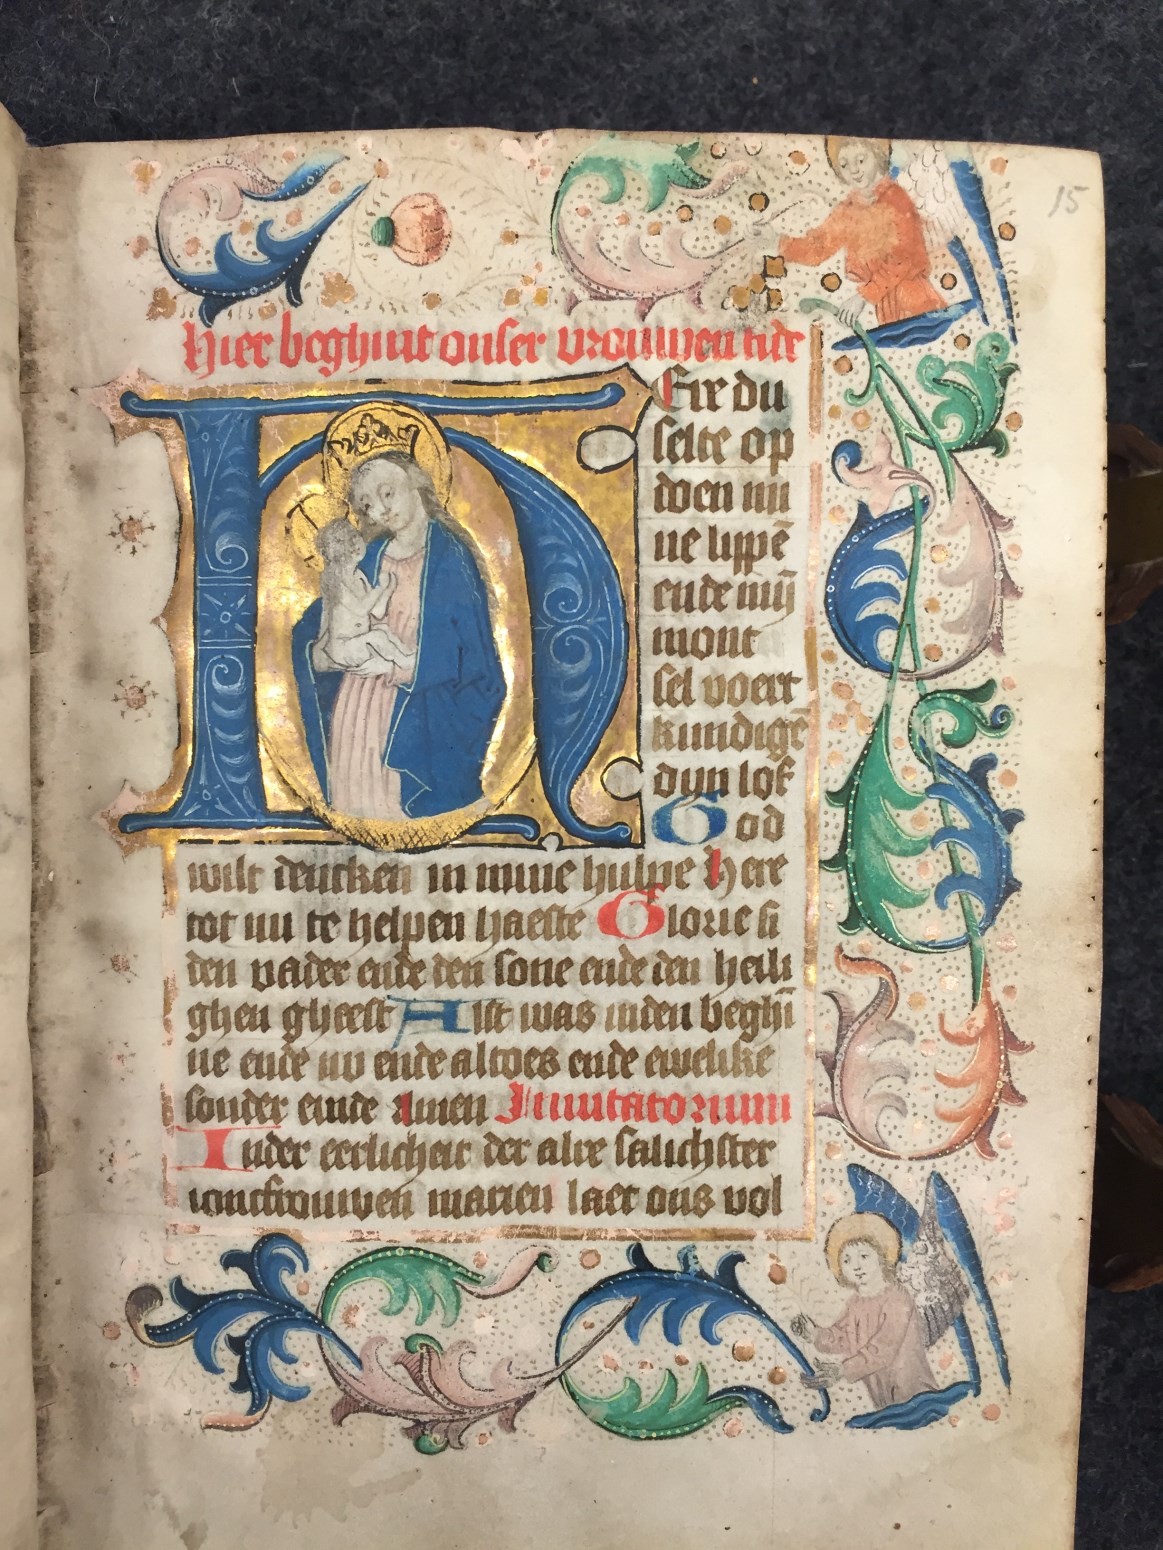 15
Hier beghint onser vrouwen tide
HEre du
selte op
doen mi
ne lippē
ende mijn
mont
sel voert
kundigē
dyn lof
God
wilt dencken in mine hulpe Here
tot mi te helpen haeste Glorie si
den vader ende den sone ende den heili
ghen gheest Alst was inden beghī
ne ende nv ende altoes ende ewelike
sonder einde Amen Inuitatorium
Inder eerlicheit der alre salichster
ioncfrouwen marien laet ons vol